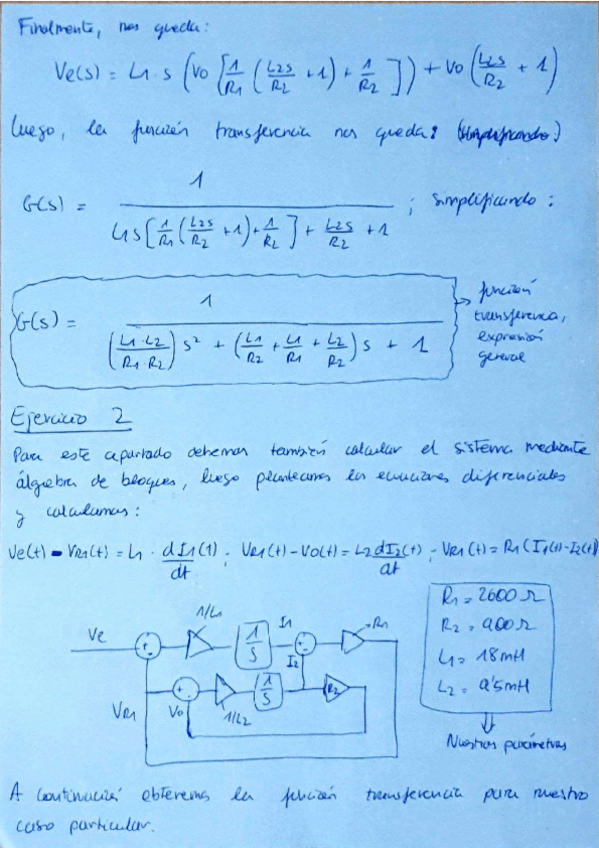 Finalmente, nos queda:
Ve(s) = L1 · s (Vo [1/R1 (L2s/R2 + 1) + 1/R2]) + Vo (L2s/R2 + 1)
Luego, la función transferencia nos queda:
G(s) = 1 / (L1s [1/R1 (L2s/R2 + 1) + 1/R2] + L2s/R2 + 1) ; simplificando:
G(s) = 1 / ((L1·L2/R1·R2) s² + (L1/R2 + L1/R1 + L2/R2) s + 1)
función
transferencia,
expresión
general
Ejercicio 2
Para este apartado debemos también calcular el sistema mediante
álgebra de bloques, luego planteamos las ecuaciones diferenciales
y calculamos:
Ve(t) - VR1(t) = L1 · dI1(t)/dt ; VR1(t) - Vo(t) = L2 dI2(t)/dt ; VR1(t) = R1 (I1(t) - I2(t))
Ve
+
-
1/L1
1/s
I1
+
-
R1
I2
VR1
Vo
+
-
1/L2
1/s
R2
R1 = 2600 Ω
R2 = 900 Ω
L1 = 18mH
L2 = 9'5mH
Nuestros parámetros
A continuación obtenemos la función transferencia para nuestro
caso particular.